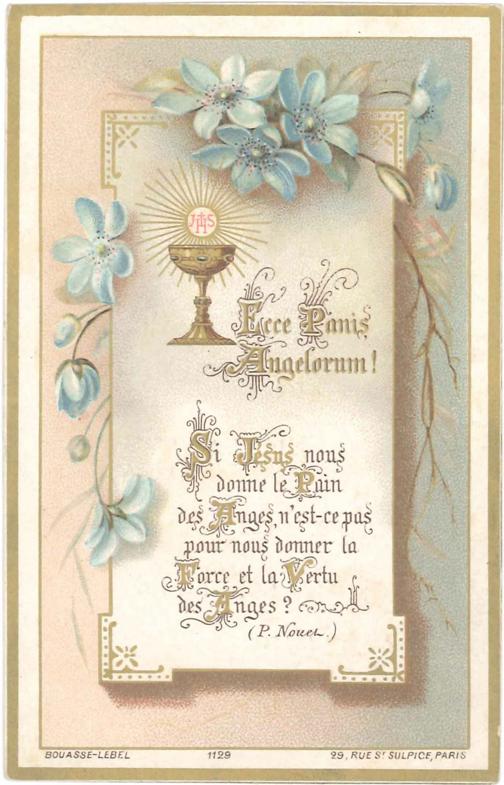 JHS
Ecce Panis
Angelorum !
Si Jésus nous
donne le Pain
des Anges, n'est-ce pas
pour nous donner la
Force et la Vertu
des Anges ?
(P. Nouet.)
BOUASSE-LEBEL 1129 29, RUE ST SULPICE, PARIS